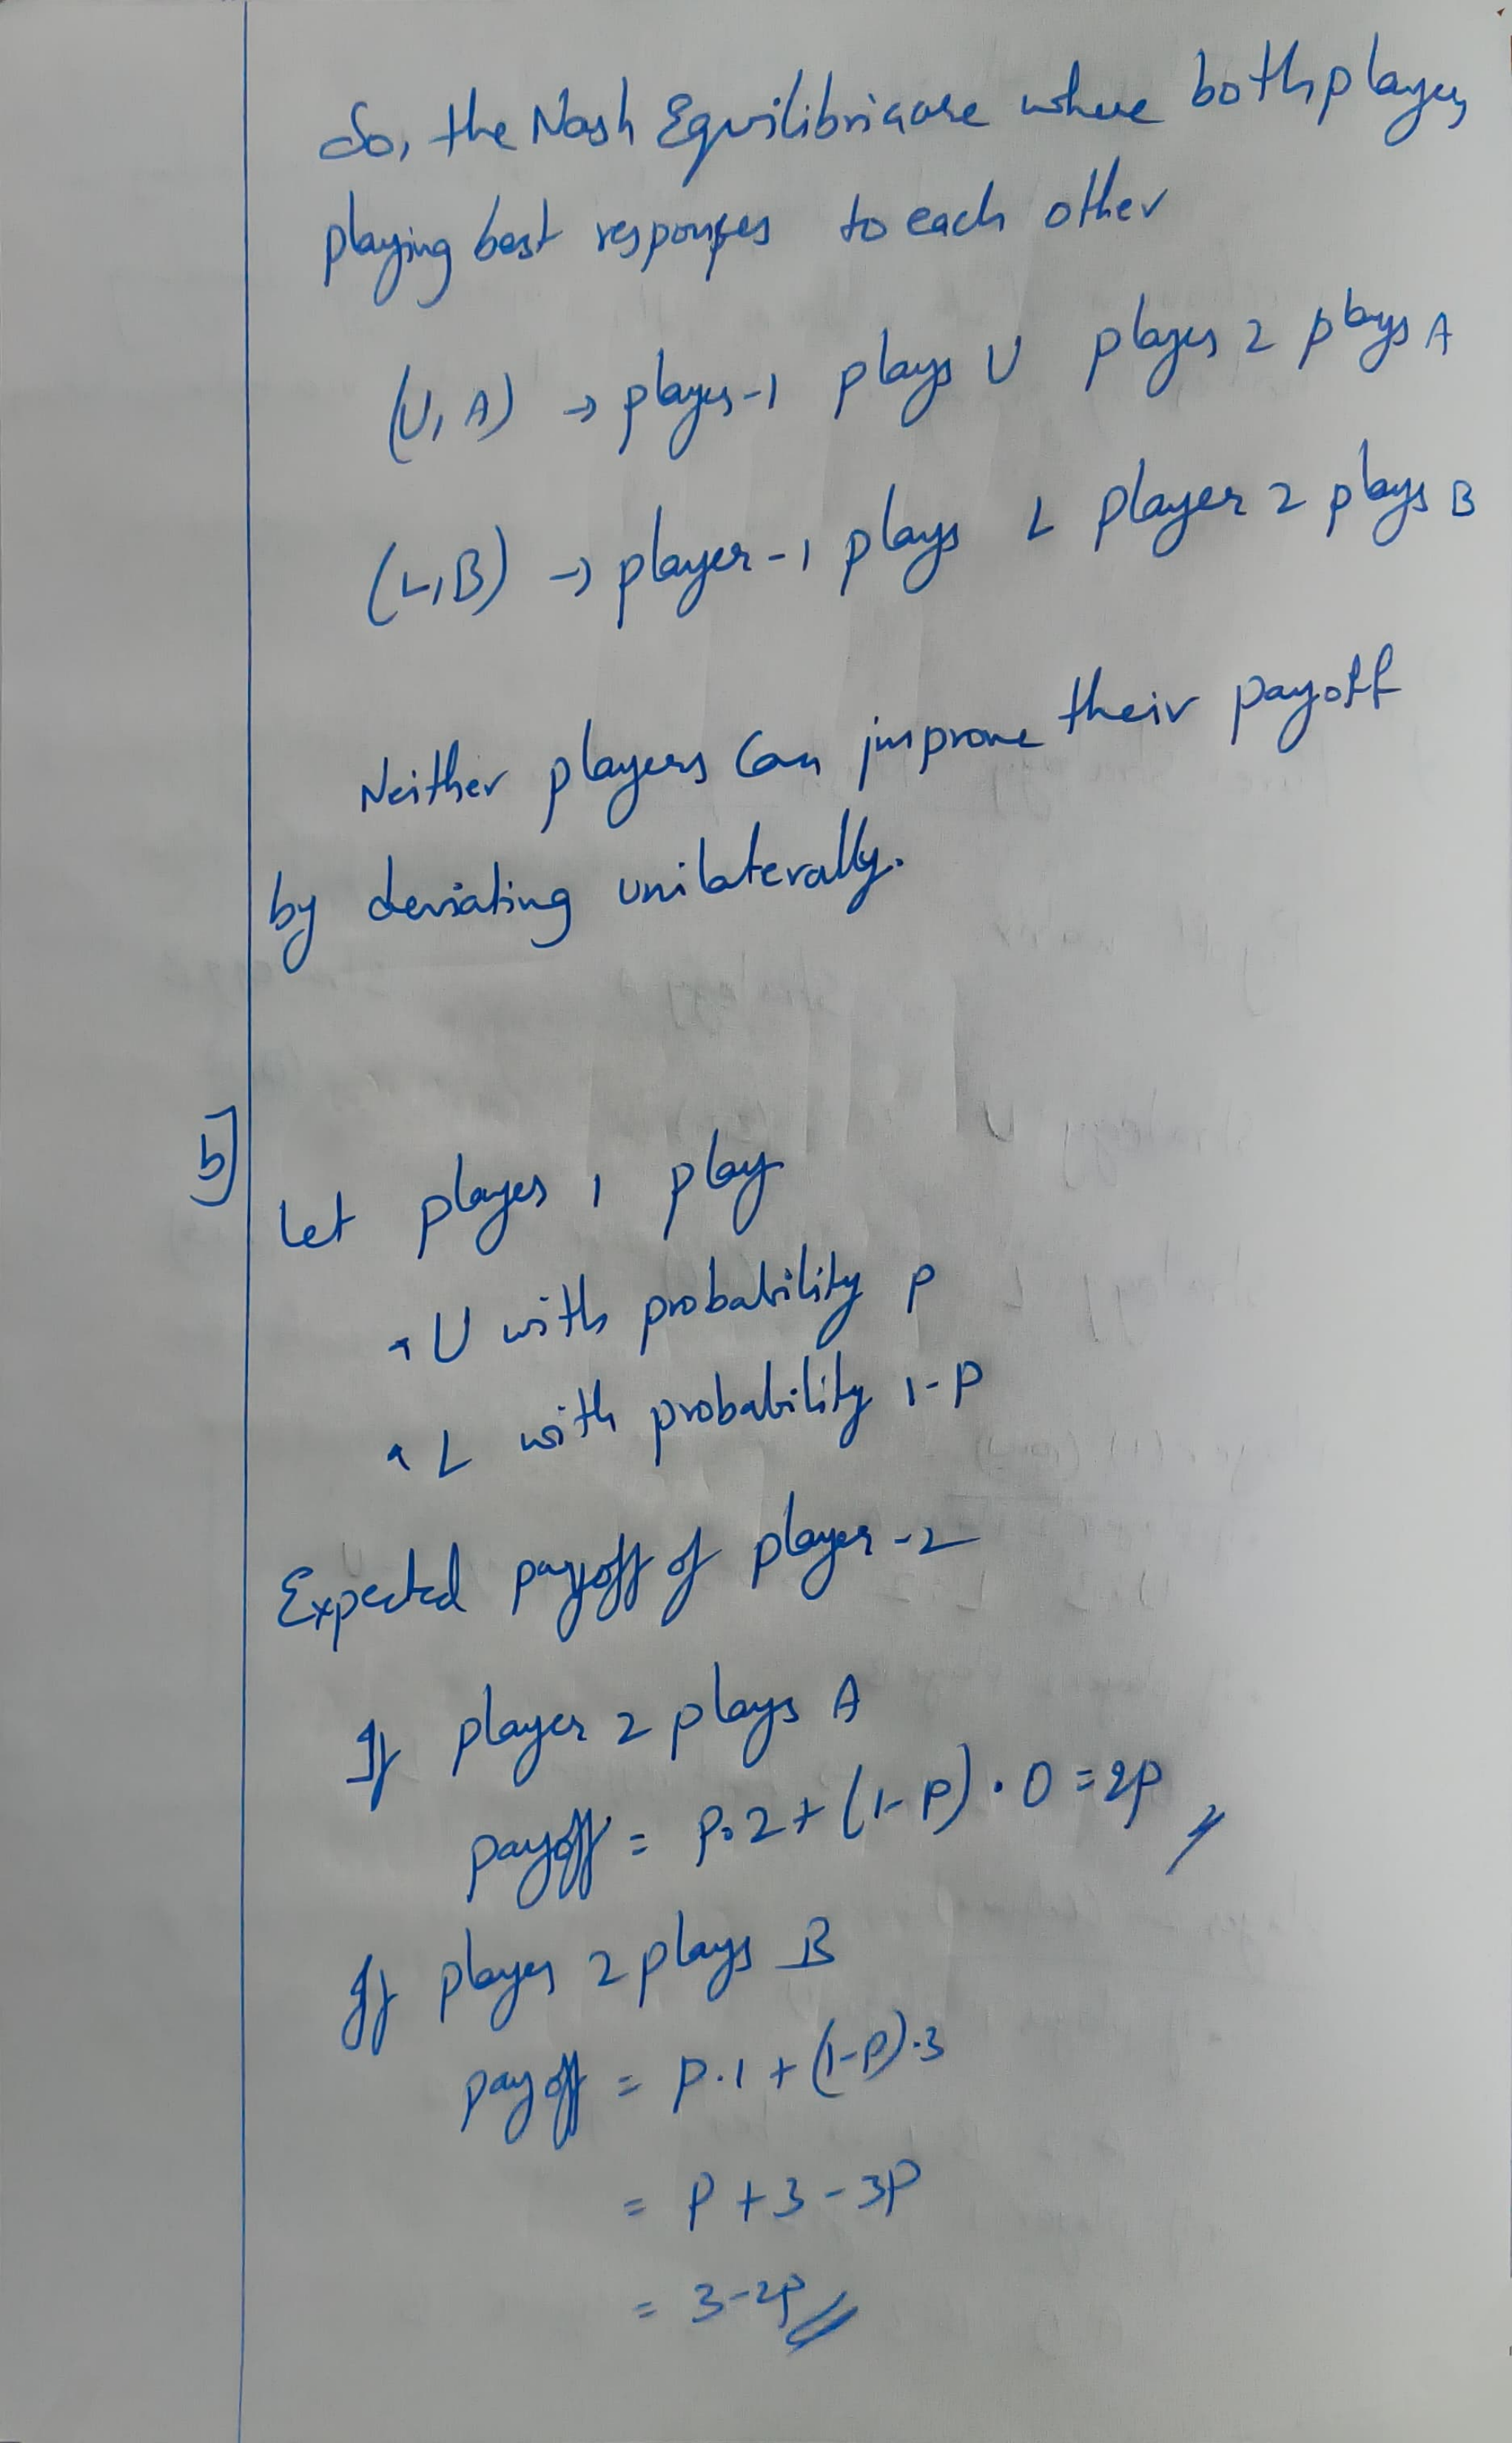 So, the Nash Equilibria are where both players
playing best responses to each other
(U, A) → player-1 plays U player 2 plays A
(L, B) → player-1 plays L player 2 plays B
Neither players can improve their payoff
by deviating unilaterally.
b]
Let player 1 play
• U with probability p
• L with probability 1-p
Expected payoff of player-2
If player 2 plays A
payoff = p.2 + (1-p) . 0 = 2p
If player 2 plays B
payoff = p.1 + (1-p).3
= p + 3 - 3p
= 3-2p